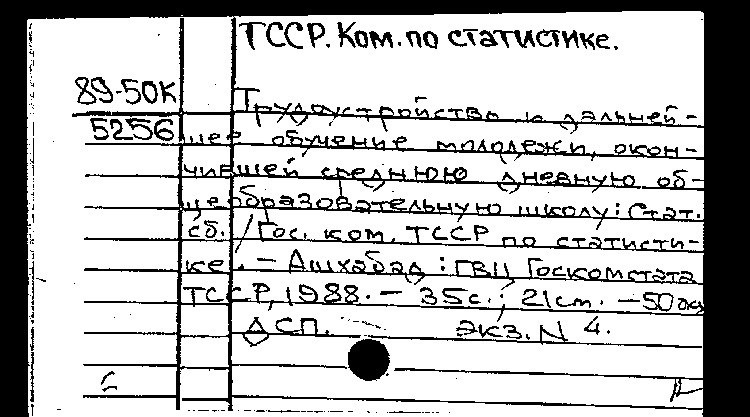 ТССР. Ком. по статистике.
89-50К
5256
Трудоустройство и дальней-
шее обучение молодежи, окон-
чившей среднюю дневную об-
щеобразовательную школу: Стат.
сб. / Гос. ком. ТССР по статисти-
ке. - Ашхабад: ГВЦ Госкомстата
ТССР, 1988. - 35 с.; 21 см. - 50
ДСП. экз. N 4.